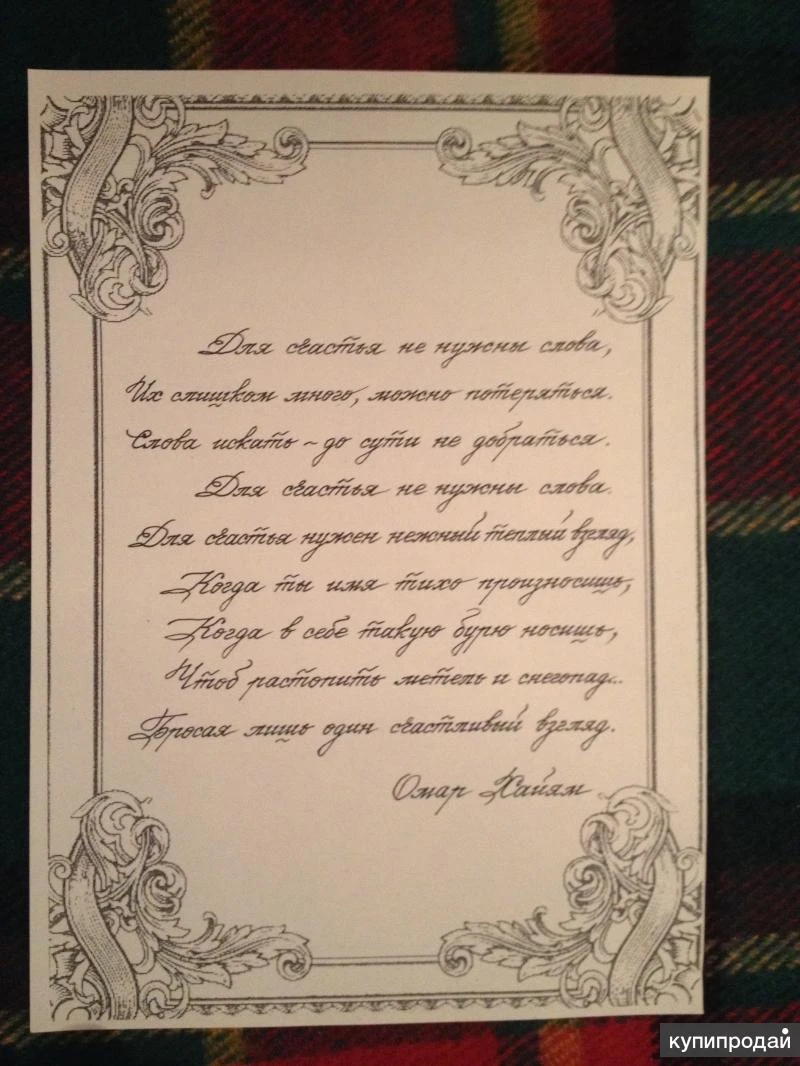 Для счастья не нужны слова,
Их слишком много, можно потеряться.
Слова искать – до сути не добраться.
Для счастья не нужны слова.
Для счастья нужен нежный теплый взгляд,
Когда ты имя тихо произносишь,
Когда в себе такую бурю носишь,
Чтоб растопить метель и снегопад...
Бросая лишь один счастливый взгляд.
Омар Хайям
купипродай